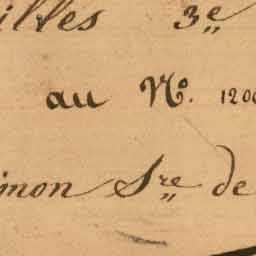 illes 3e
au No. 1200
mon Sre de